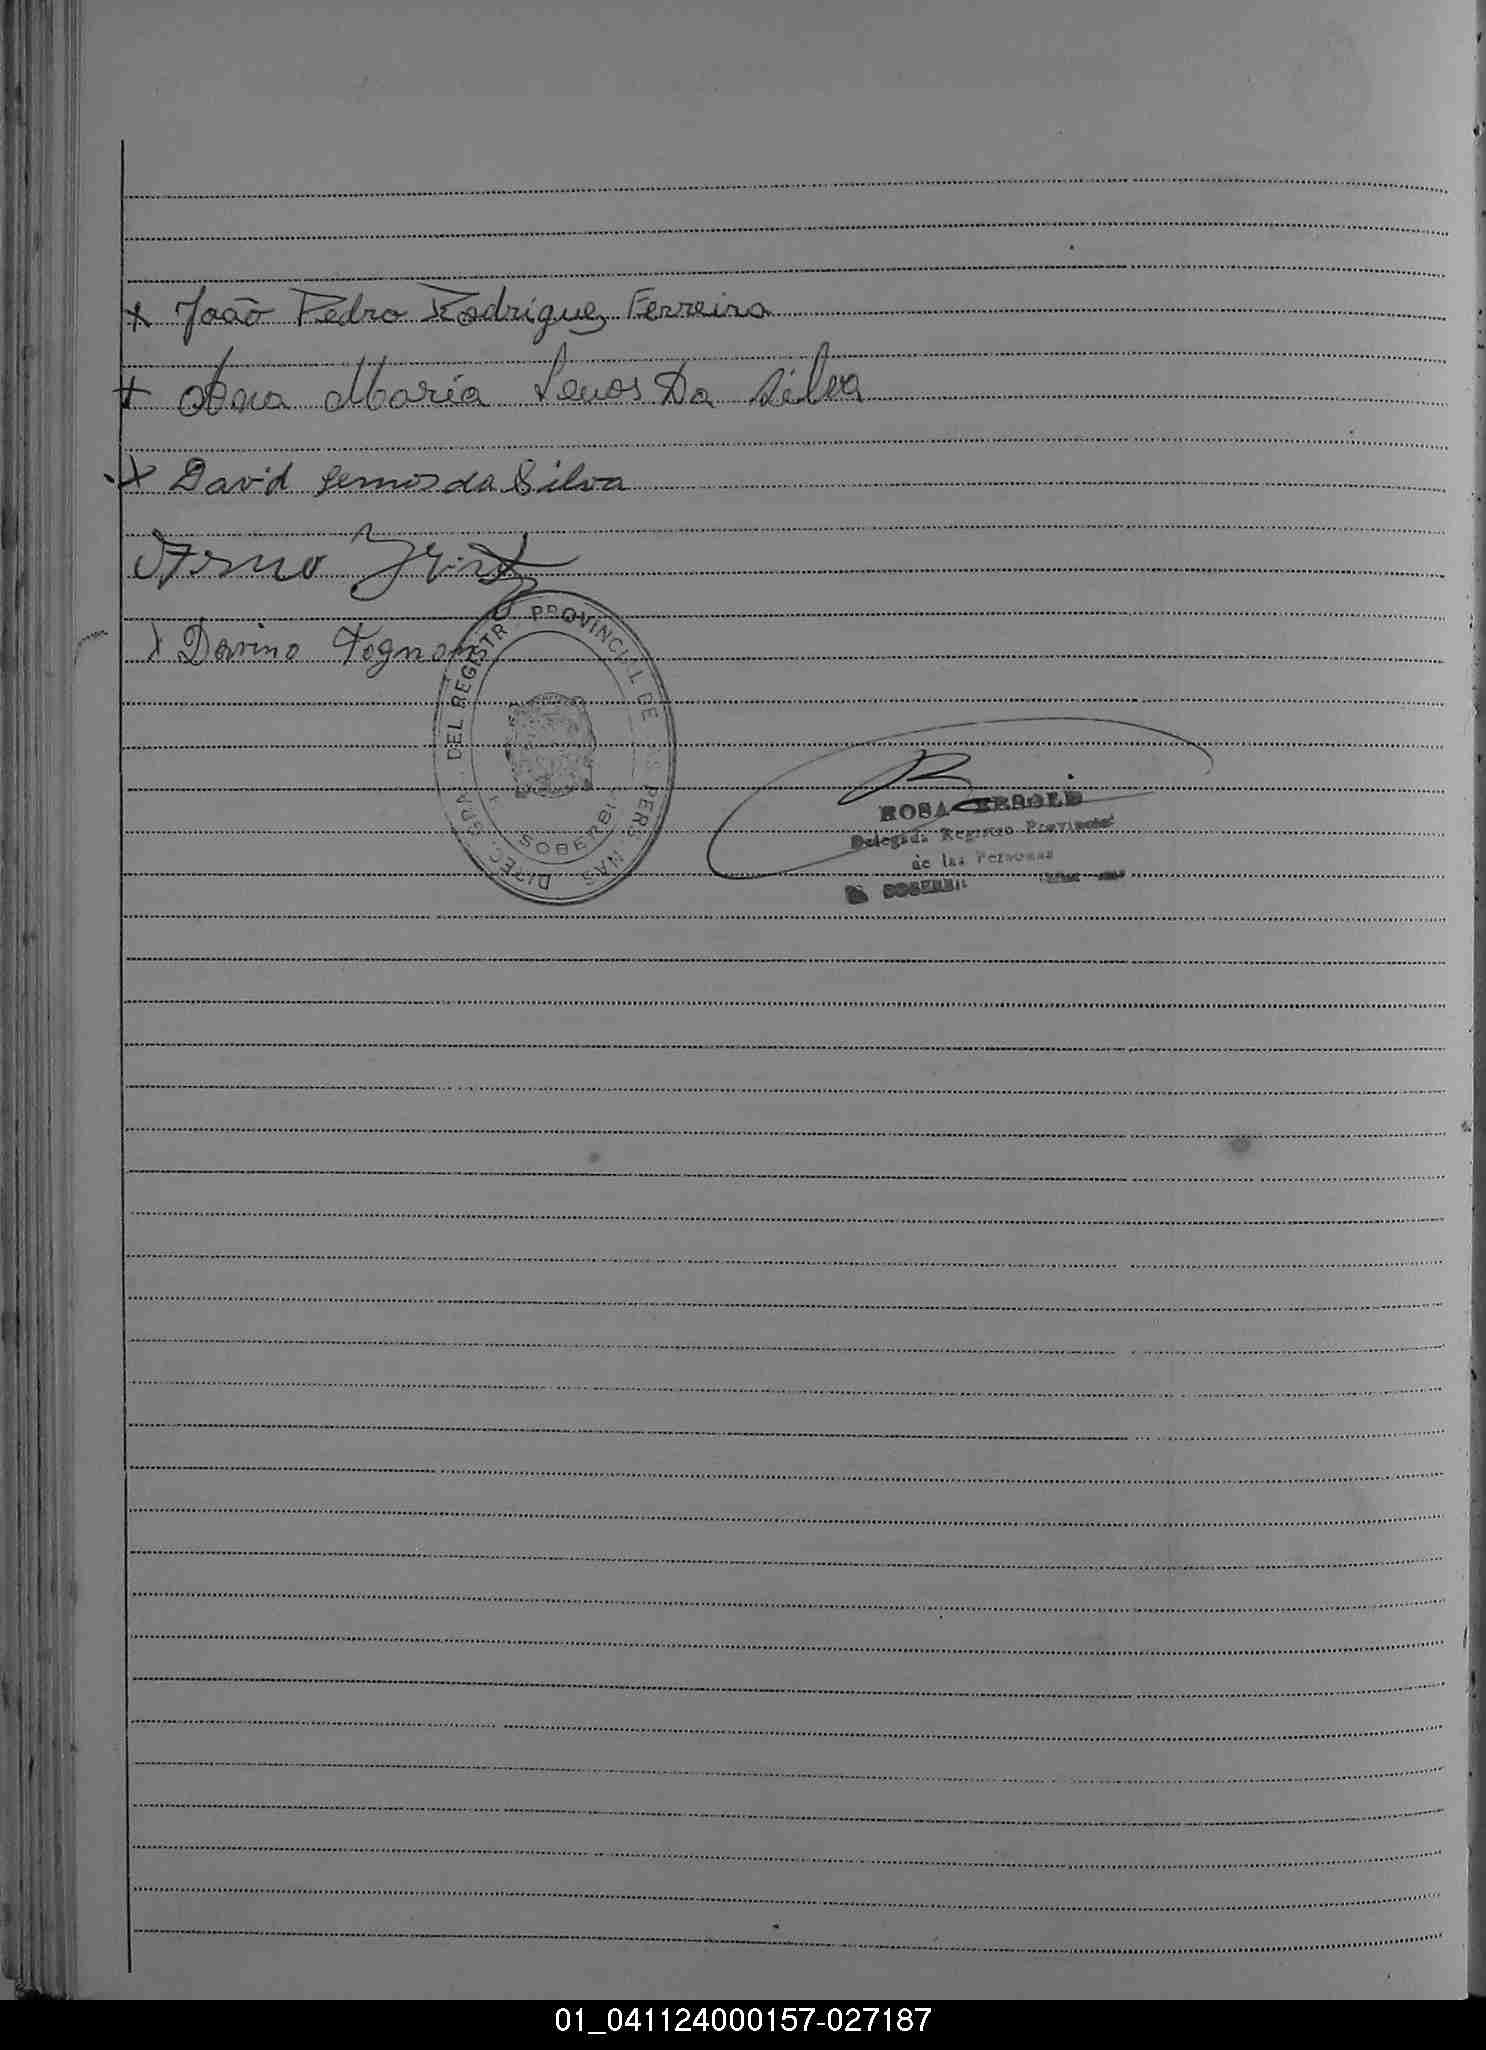 x João Pedro Rodriguez Ferreira
+ Ana Maria Lemos Da Silva
x David Lemos da Silva
Arno
x Davino Tognon
DIREC. GRAL. DEL REGISTRO PROVINCIAL DE LAS PERSONAS
SOBERBIO
ROSA
Delegada Registro Provincial
de las Personas
SOBERBIO
01_041124000157-027187